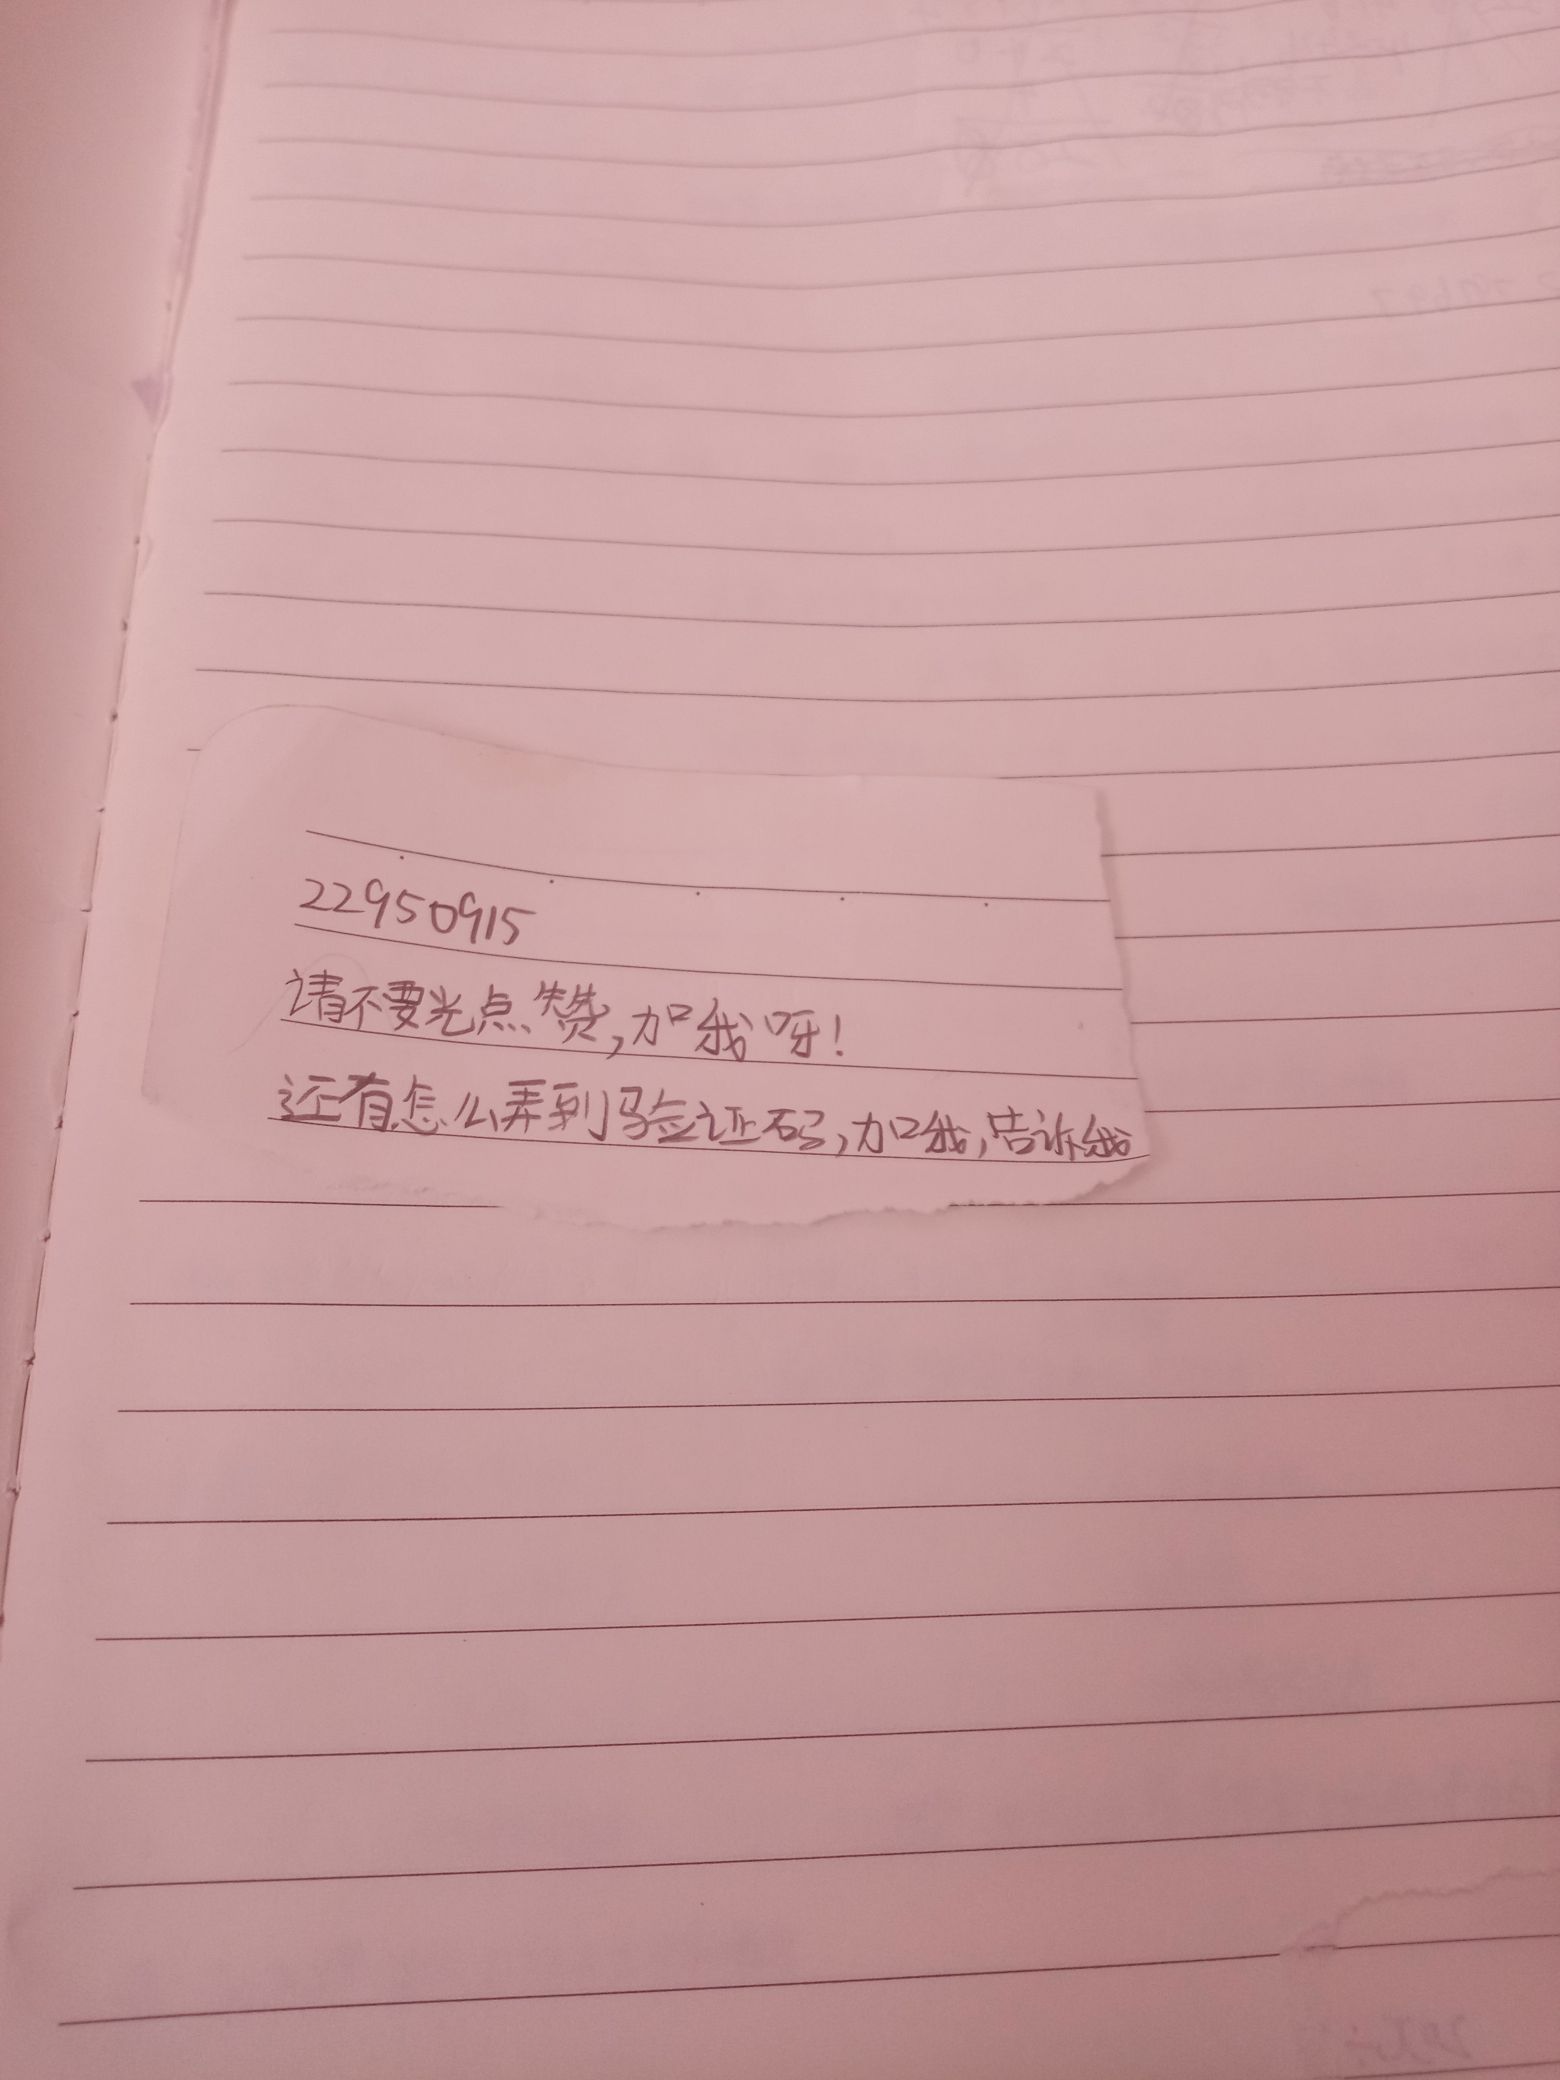 22950915
请不要光点赞,加我呀!
还有怎么弄到验证码,加我,告诉我